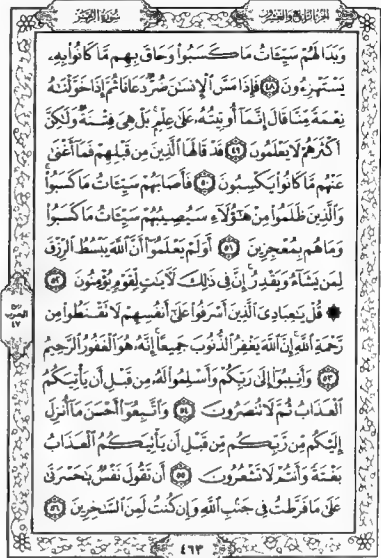 الجزء الرابع والعشرون
سورة الزمر
وَبَدَا لَهُمْ سَيِّـَٔاتُ مَا كَسَبُوا۟ وَحَاقَ بِهِم مَّا كَانُوا۟ بِهِۦ
يَسْتَهْزِءُونَ ٤٨ فَإِذَا مَسَّ ٱلْإِنسَٰنَ ضُرٌّ دَعَانَا ثُمَّ إِذَا خَوَّلْنَٰهُ
نِعْمَةً مِّنَّا قَالَ إِنَّمَآ أُوتِيتُهُۥ عَلَىٰ عِلْمٍۭ بَلْ هِىَ فِتْنَةٌ وَلَٰكِنَّ
أَكْثَرَهُمْ لَا يَعْلَمُونَ ٤٩ قَدْ قَالَهَا ٱلَّذِينَ مِن قَبْلِهِمْ فَمَآ أَغْنَىٰ
عَنْهُم مَّا كَانُوا۟ يَكْسِبُونَ ٥٠ فَأَصَابَهُمْ سَيِّـَٔاتُ مَا كَسَبُوا۟
وَٱلَّذِينَ ظَلَمُوا۟ مِنْ هَٰٓؤُلَآءِ سَيُصِيبُهُمْ سَيِّـَٔاتُ مَا كَسَبُوا۟
وَمَا هُم بِمُعْجِزِينَ ٥١ أَوَلَمْ يَعْلَمُوٓا۟ أَنَّ ٱللَّهَ يَبْسُطُ ٱلرِّزْقَ
لِمَن يَشَآءُ وَيَقْدِرُ إِنَّ فِى ذَٰلِكَ لَءَايَٰتٍ لِّقَوْمٍ يُؤْمِنُونَ ٥٢
۞ قُلْ يَٰعِبَادِىَ ٱلَّذِينَ أَسْرَفُوا۟ عَلَىٰٓ أَنفُسِهِمْ لَا تَقْنَطُوا۟ مِن
رَّحْمَةِ ٱللَّهِ إِنَّ ٱللَّهَ يَغْفِرُ ٱلذُّنُوبَ جَمِيعًا إِنَّهُۥ هُوَ ٱلْغَفُورُ ٱلرَّحِيمُ
٥٣ وَأَنِيبُوٓا۟ إِلَىٰ رَبِّكُمْ وَأَسْلِمُوا۟ لَهُۥ مِن قَبْلِ أَن يَأْتِيَكُمُ
ٱلْعَذَابُ ثُمَّ لَا تُنصَرُونَ ٥٤ وَٱتَّبِعُوٓا۟ أَحْسَنَ مَآ أُنزِلَ
إِلَيْكُم مِّن رَّبِّكُم مِّن قَبْلِ أَن يَأْتِيَكُمُ ٱلْعَذَابُ
بَغْتَةً وَأَنتُمْ لَا تَشْعُرُونَ ٥٥ أَن تَقُولَ نَفْسٌ يَٰحَسْرَتَىٰ
عَلَىٰ مَا فَرَّطتُ فِى جَنۢبِ ٱللَّهِ وَإِن كُنتُ لَمِنَ ٱلسَّٰخِرِينَ ٥٦
ربع
الحزب
٤٧
٤٦٣